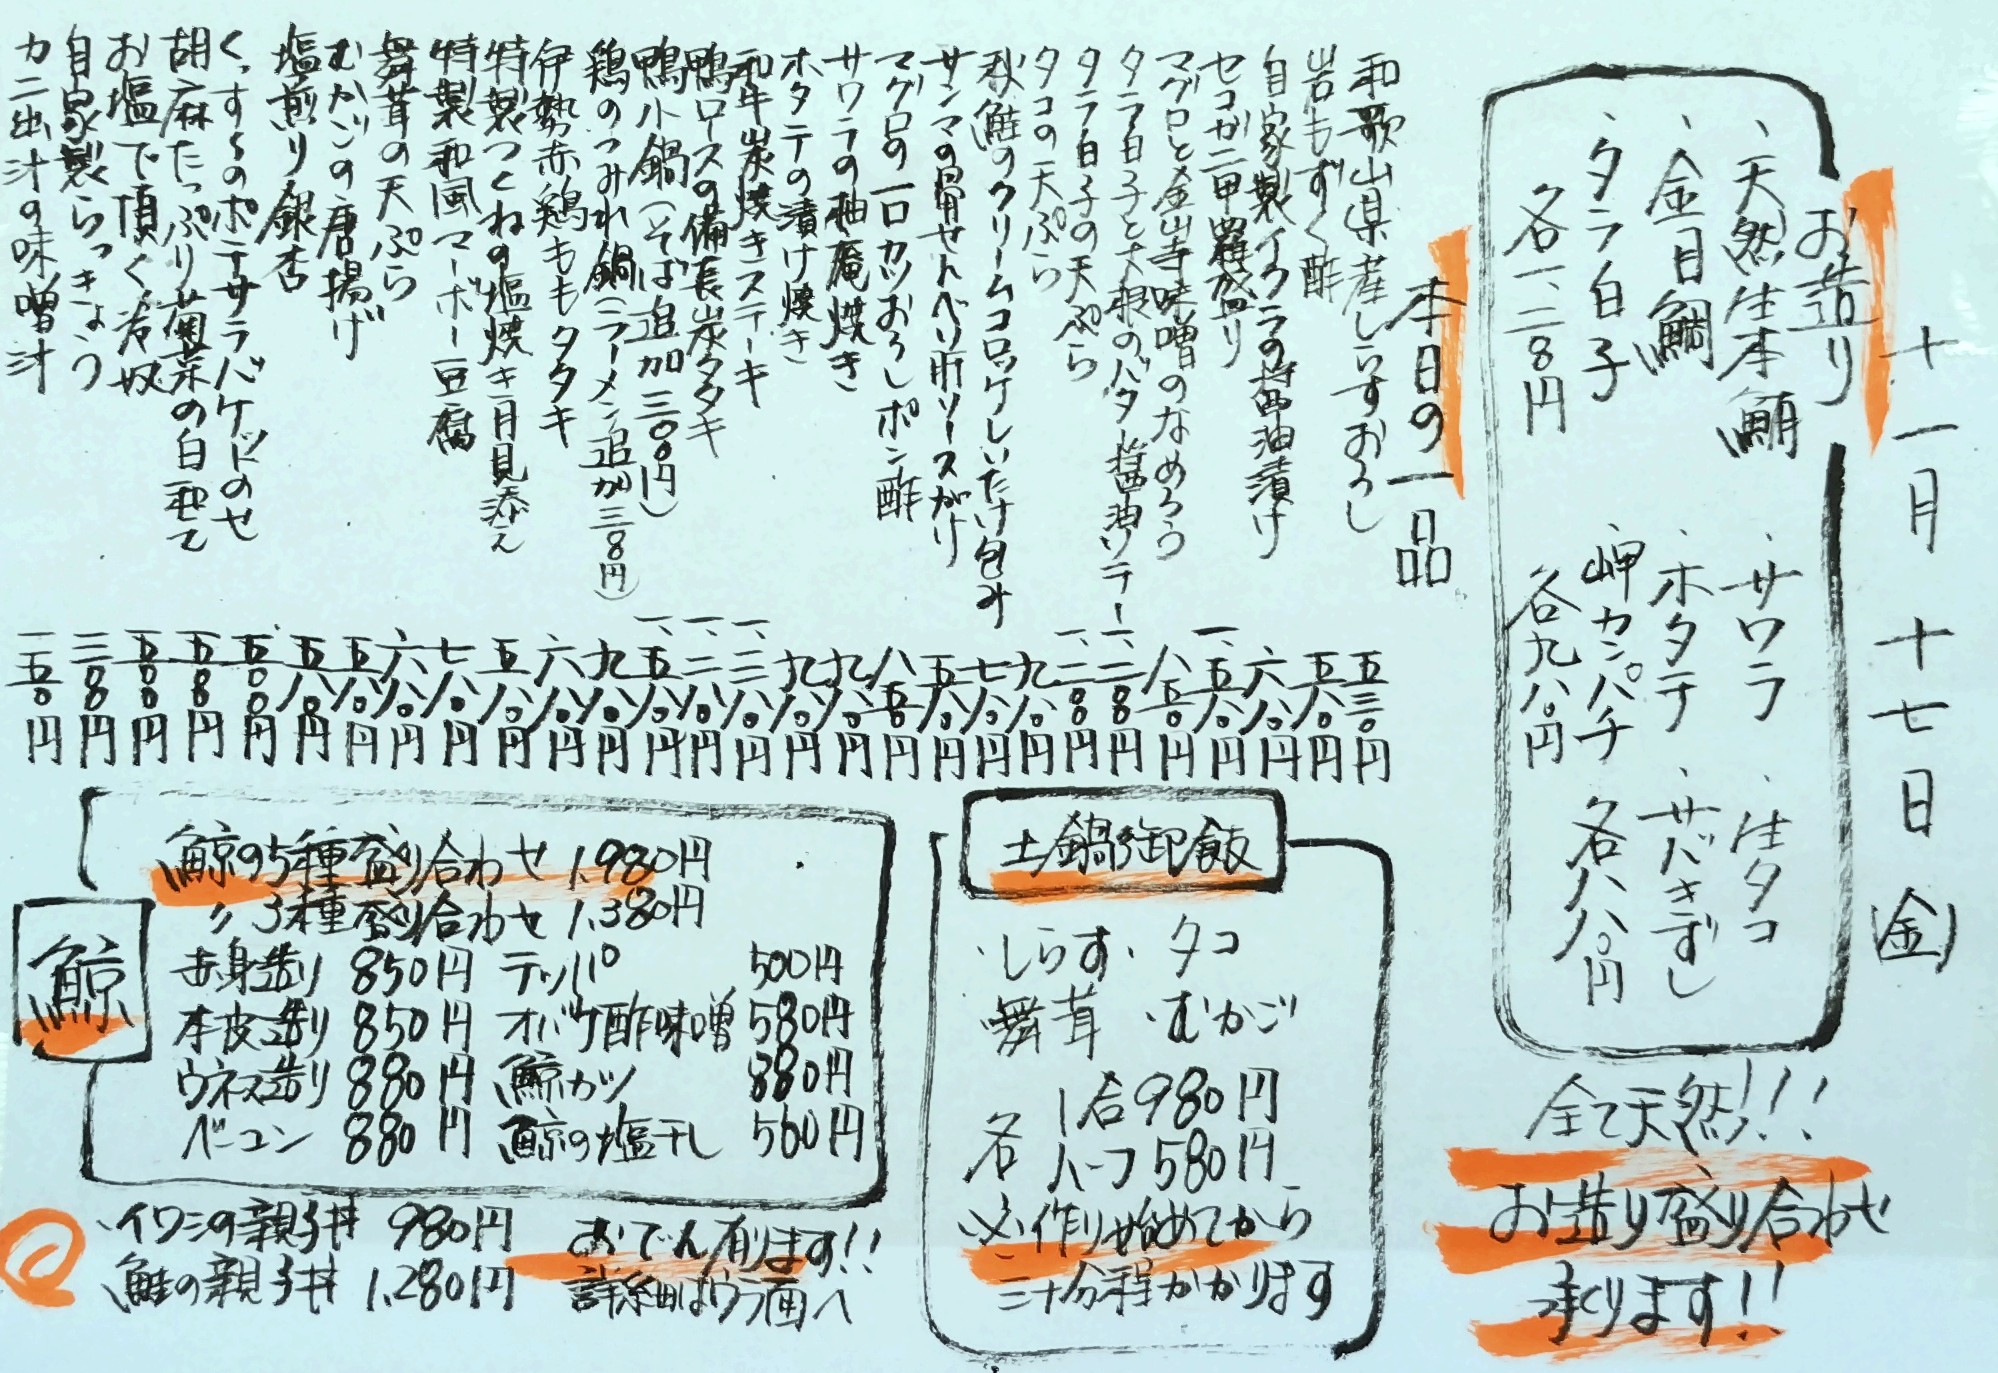 十一月十七日(金)
お造り
・天然生本鮪
・金目鯛
・タラ白子
各一、二八〇円
・サワラ
・ホタテ
・岬カンパチ
各九八〇円
・生タコ
・サバきずし
各八八〇円
全て天然!!!
お造り盛り合わせ
承ります!!
本日の一品
和歌山県産しらすおろし 五三〇円
岩もずく酢 五八〇円
自家製イクラの醤油漬け 六八〇円
セコガニ甲羅盛り 一、五八〇円
マグロと金山寺味噌のなめろう 八五〇円
タラ白子と大根のバター醤油ソテー 一、二八〇円
タラ白子の天ぷら 一、二八〇円
タコの天ぷら 九八〇円
秋鮭のクリームコロッケしいたけ包み 七八〇円
サンマの骨せんべい肝ソースがけ 五八〇円
マグロの一口カツおろしポン酢 八五〇円
サワラの柚庵焼き 九八〇円
ホタテの漬け焼き 九八〇円
和牛炭焼きステーキ 一、三八〇円
鴨ロースの備長炭タタキ 一、二八〇円
鴨小鍋(そば追加三〇〇円) 一、五八〇円
鶏のつみれ鍋(ラーメン追加三八〇円) 九八〇円
伊勢赤鶏ももタタキ 六八〇円
特製つくねの塩焼き月見添え 五八〇円
特製和風マーボー豆腐 七八〇円
舞茸の天ぷら 六八〇円
むかごの唐揚げ 五八〇円
塩煎り銀杏 五八〇円
くっすーのポテサラバケットのせ 五〇〇円
胡麻たっぷり菊菜の白和て 五八〇円
お塩で頂く冷奴 五〇〇円
自家製らっきょう 三八〇円
カニ出汁の味噌汁 一五〇円
土鍋御飯
・しらす・タコ
・舞茸・むかご
各
1合980円
ハーフ580円
※作り始めてから
三十分程かかります
鯨
鯨の5種盛り合わせ 1,980円
〃 3種盛り合わせ 1,380円
赤身造り 850円 テッパ 500円
本皮造り 850円 オバケ酢味噌 580円
ウネス造り 880円 鯨カツ 880円
ベーコン 880円 鯨の塩干し 560円
・イワシの親子丼 980円
・鮭の親子丼 1,280円
おでん有ります!!
詳細はウラ面へ